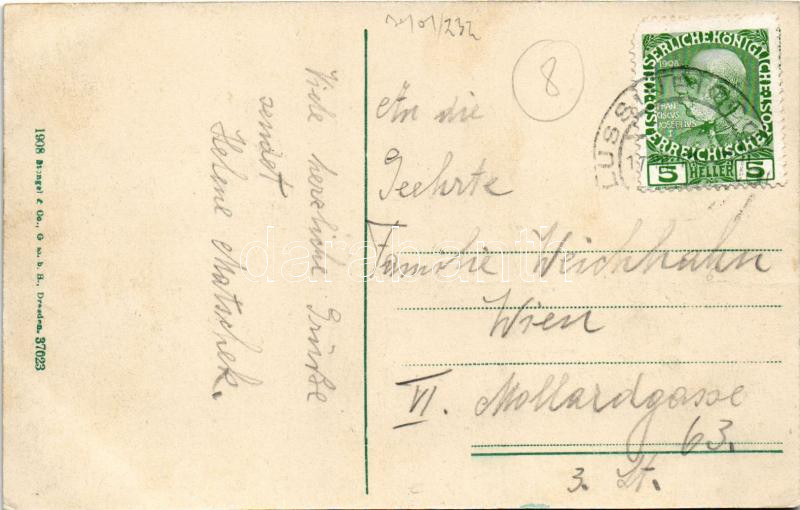 1908 Stengel & Co., G. m. b. H., Dresden. 37023
Viele herzliche Grüße
sendet
Helene Matschek.
8
An die
Geehrte
Familie Weichhahn
Wien
VI. Mollardgasse
63.
3. St.
KAISERLICHE KÖNIGLICHE
ÖSTERREICHISCHE
1908
FRAN
CISCUS
JOSEPHUS
5 HELLER 5
LUSSIN
darabanth